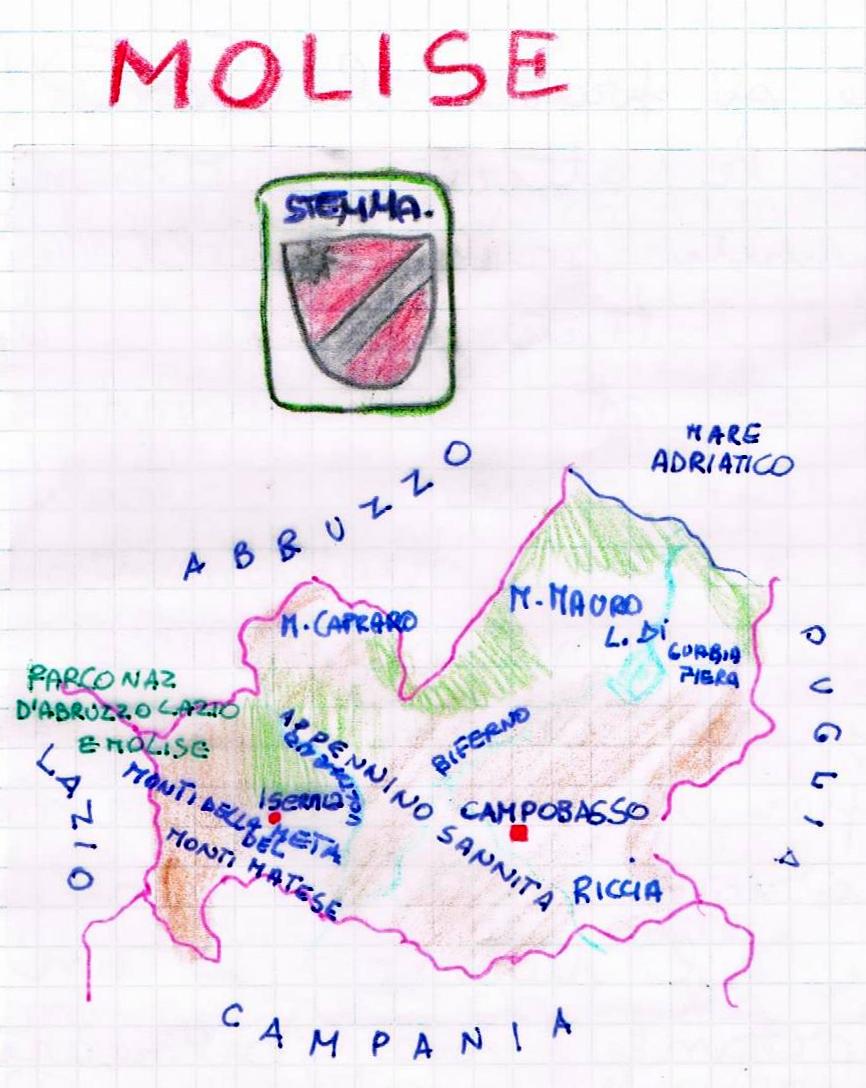 MOLISE
STEMMA.
MARE
ADRIATICO
ABRUZZO
M. MAURO
M. CAPRARO
L. DI
GUARDIA
FIERA
PARCO NAZ
D'ABRUZZO LAZIO
E MOLISE
PUGLIA
LAZIO
APPENNINO SANNITA
BIFERNO
MONTI DELLA META
ISERNIA
CAMPOBASSO
MONTI DEL MATESE
RICCIA
CAMPANIA